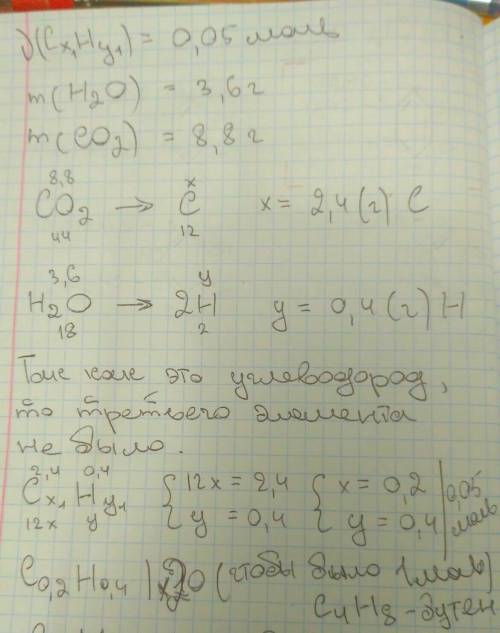 ν(Cx₁Hy₁) = 0,05 моль
m(H2O) = 3,6 г
m(CO2) = 8,8 г
8,8 x
CO2 → C x = 2,4 (г) C
44 12
3,6 y
H2O → 2H y = 0,4 (г) H
18 2
Так как это углеводород,
то третьего элемента
не было.
2,4 0,4
Cx₁Hy₁ { 12x = 2,4 { x = 0,2 | 0,05
12x y y = 0,4 y = 0,4 | моль
C0,2H0,4 | 20 (чтобы было 1 моль)
C4H8 - бутен